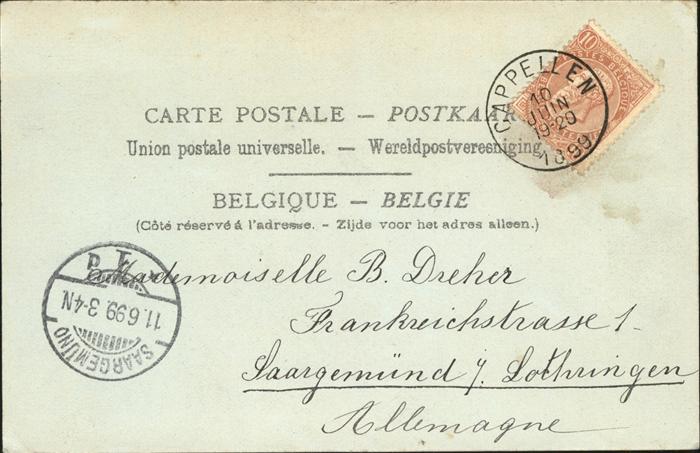 10
POSTES
CAPPELLEN
10
JUIN
19-20
1899
CARTE POSTALE – POSTKAAR
Union postale universelle. – Wereldpostvereeniging
BELGIQUE – BELGIE
(Côté réservé á l'adresse. - Zijde voor het adres alleen.)
Mademoiselle B. Dreher
Frankreichstrasse 1.
Saargemünd i/. Lothringen
Allemagne
11.6.99. 3-4N.
SAARGEMÜND